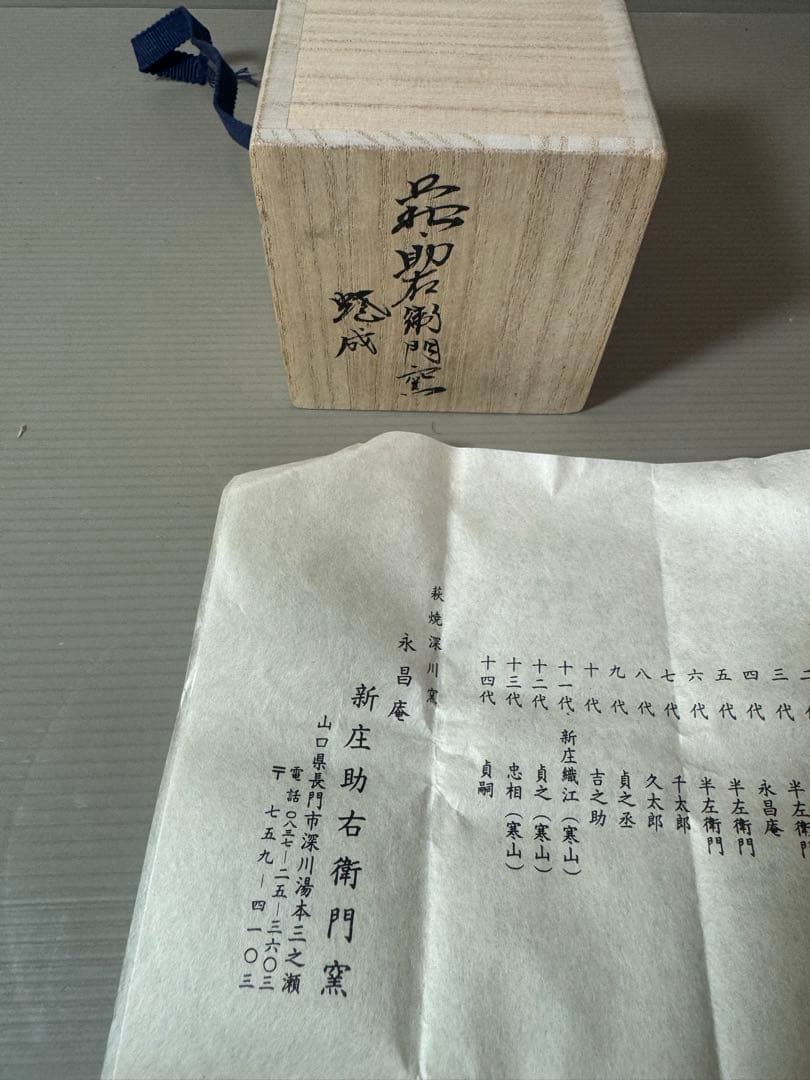 萩
助右衛門窯
二
三代 永昌庵
四代 半左衛門
五代 半左衛門
六代 千太郎
七代 久太郎
八代 貞之丞
九代 吉之助
十代
十一代 新庄織江（寒山）
十二代 貞之（寒山）
十三代 忠相（寒山）
十四代 貞嗣
萩焼深川窯
永昌庵
新庄助右衛門窯
山口県長門市深川湯本三之瀬
電話 〇八三七―二五―三六〇三
〒 七五九―四一〇三